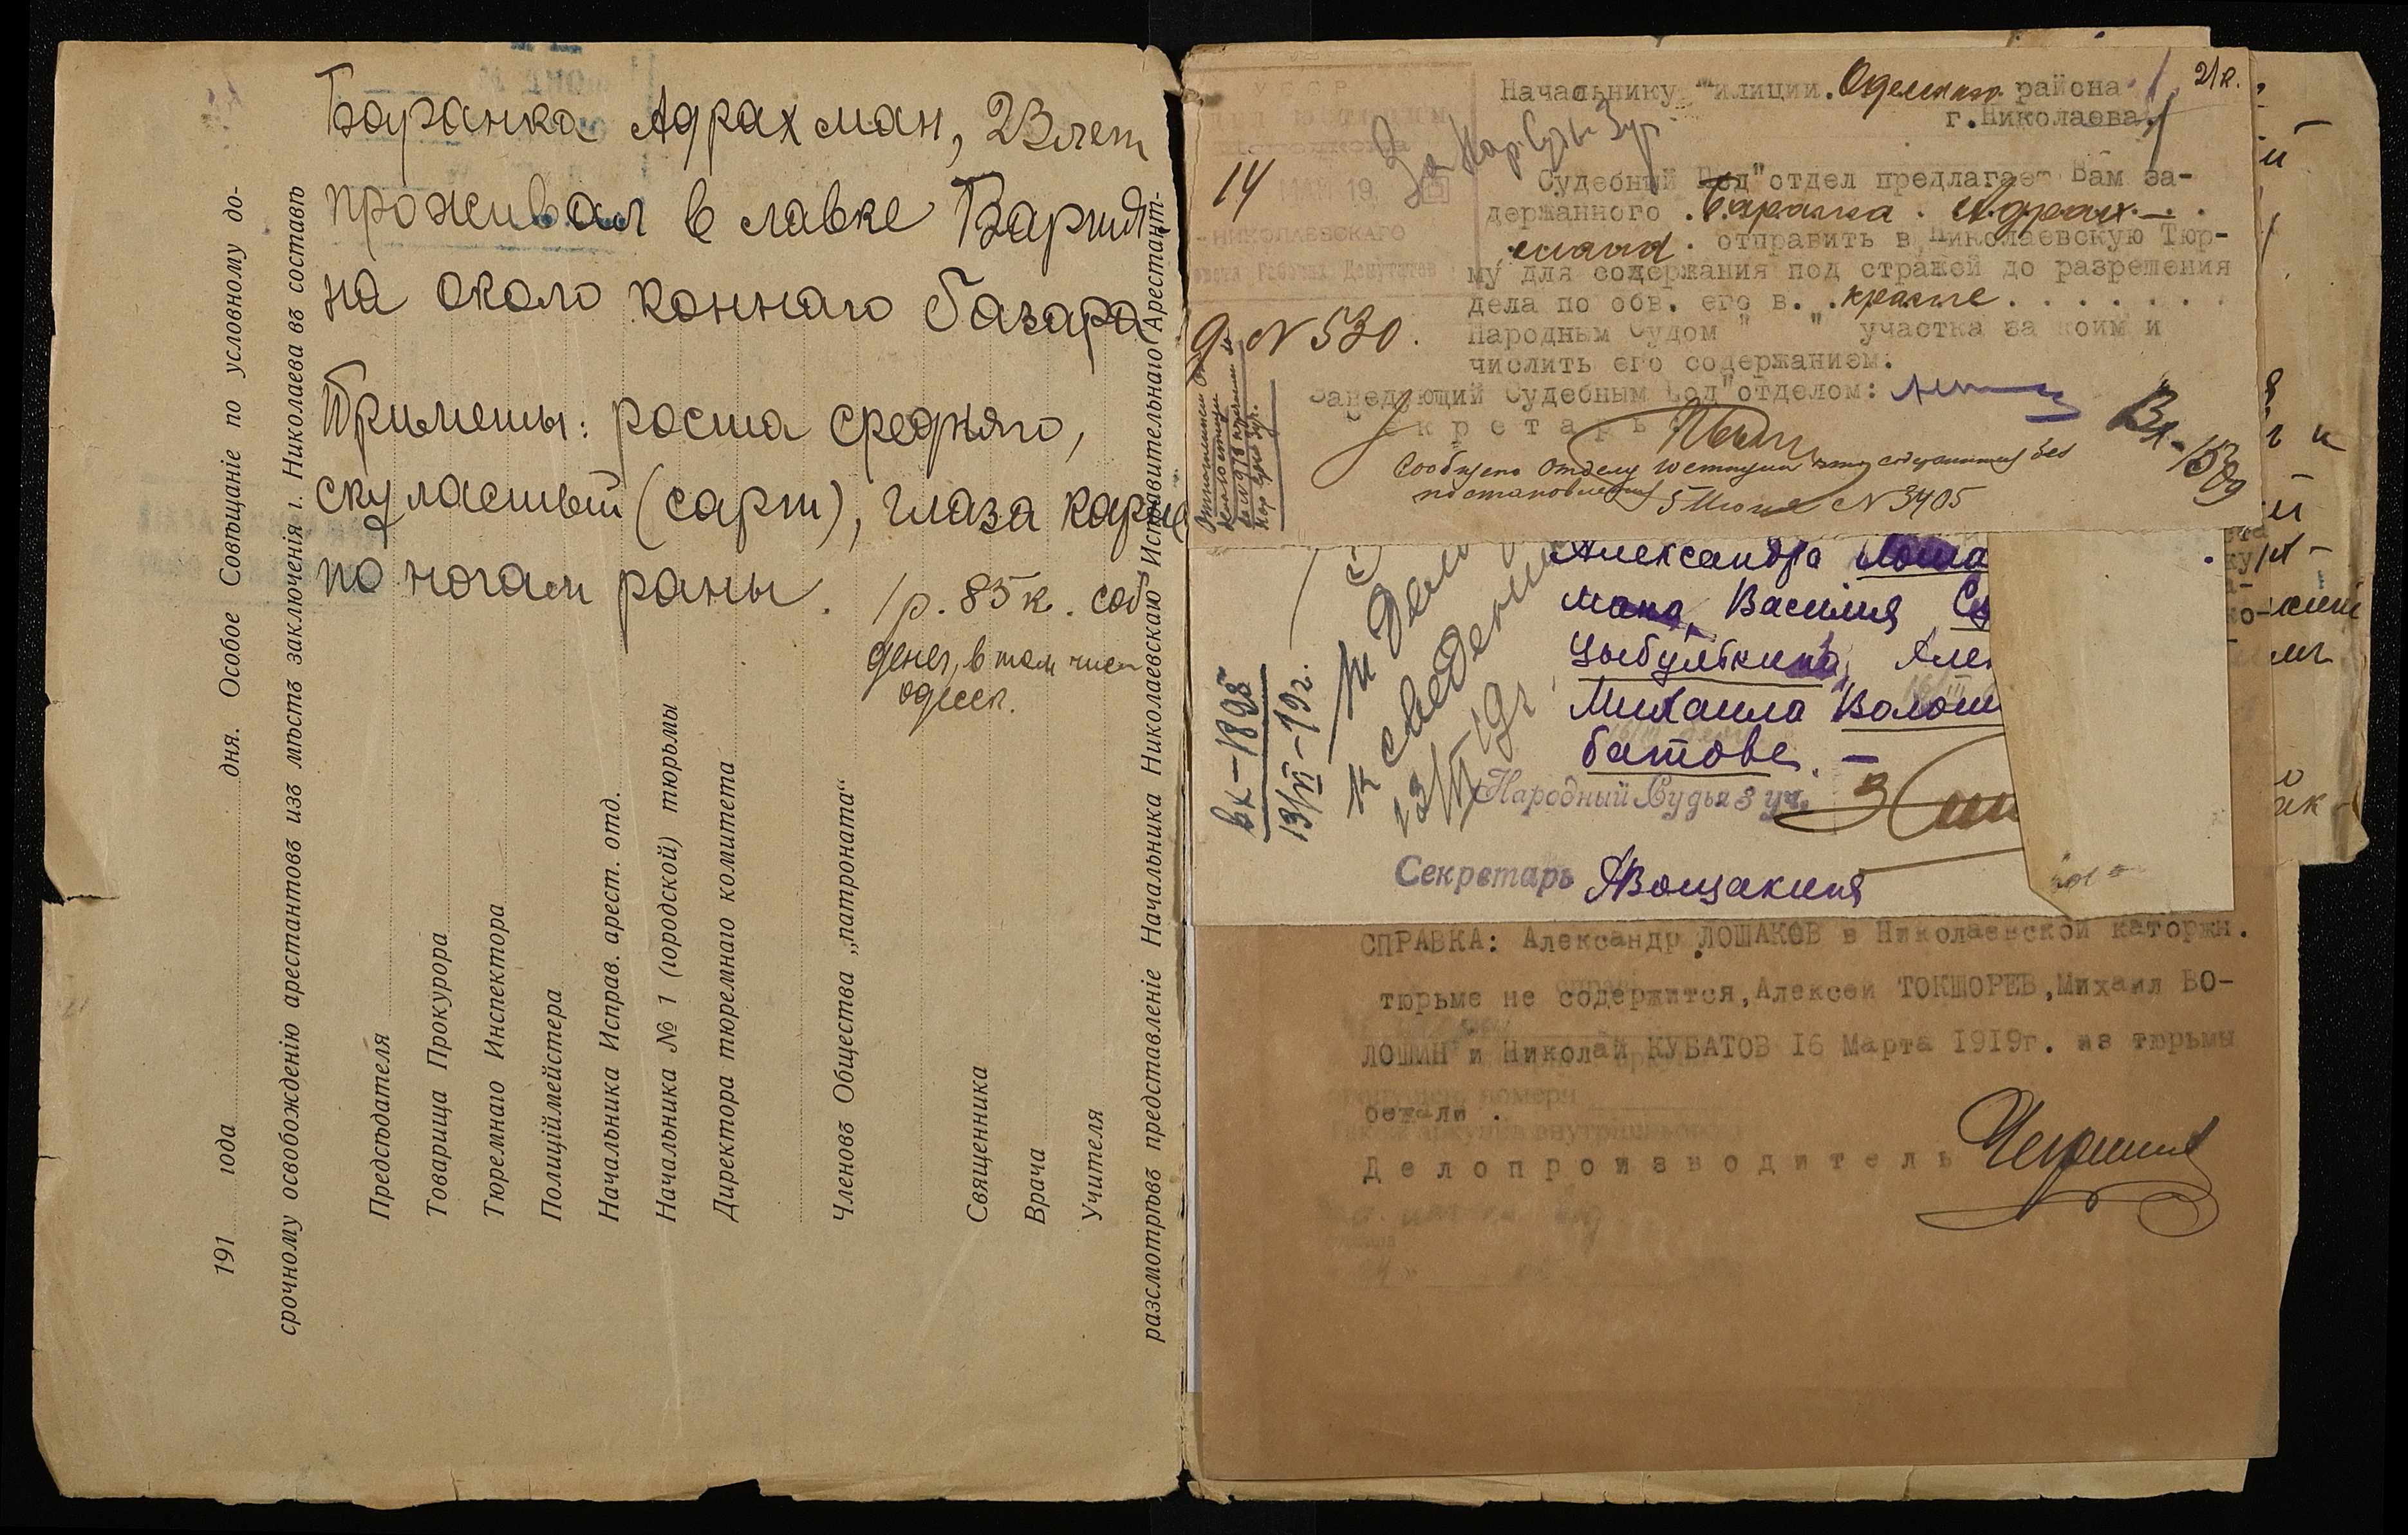 Баранка Адрахман, 23 лет
проживал в лавке Варши
на около коннаго базара
Приметы: роста средняго,
скуластый (сарт), глаза карие
по ногам раны.
1 р. 85 к. соб
денег, в том числ
одесск.
191 года дня. Особое Совѣщаніе по условному до-
срочному освобожденію арестантовъ изъ мѣстъ заключенія г. Николаева въ составѣ
Предсѣдателя
Товарища Прокурора
Тюремнаго Инспектора
Полиціймейстера
Начальника Исправ. арест. отд.
Начальника № 1 (городской) тюрьмы
Директора тюремнаго комитета
Членовъ Общества „патроната“
Священника
Врача
Учителя
разсмотрѣвъ представленіе Начальника Николаевскаго Исправительнаго Арестант-
21 к.
Начальнику милиции. Одесского района
г. Николаева.
За Нар. Судьи 3 уч.
14 19
НИКОЛАЕВСКАГО
Рабочих Депутатов
Судебный Под"отдел предлагает Вам за-
держанного . Баранка . Адрах-
мана . отправить в Николаевскую Тюр-
му для содержания под стражей до разрешения
дела по обв. его в. . краже . . . . . . .
№ 530.
Народным Судом " " участка за коим и
числить его содержанием.
Заведующий Судебным Под"отделом:
Секретарь
Вх-1509
Сообщено Отделу Юстиции что содержится без
постановления 5 Июня № 3405
Александра Лоша
мана, Василия
Цыбулькина, Але
Михаила Волош
батове. —
вх-1898
13/VI-19 г.
к делу
к сведению
13/VI 19 г
Народный Судья 3 уч.
Секретарь АВощакина
СПРАВКА: Александр ЛОШАКОВ в Николаевской каторжн.
тюрьме не содержится, Алексей ТОКШОРЕВ, Михаил ВО-
ЛОШИН и Николай КУБАТОВ 16 Марта 1919г. из тюрьмы
бежали .
Делопроизводитель